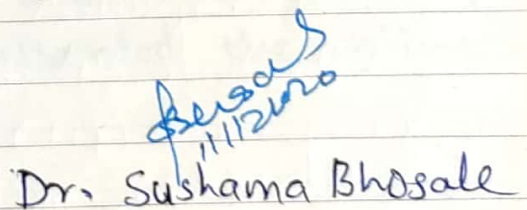 11/12/2020
Dr. Sushama Bhosale